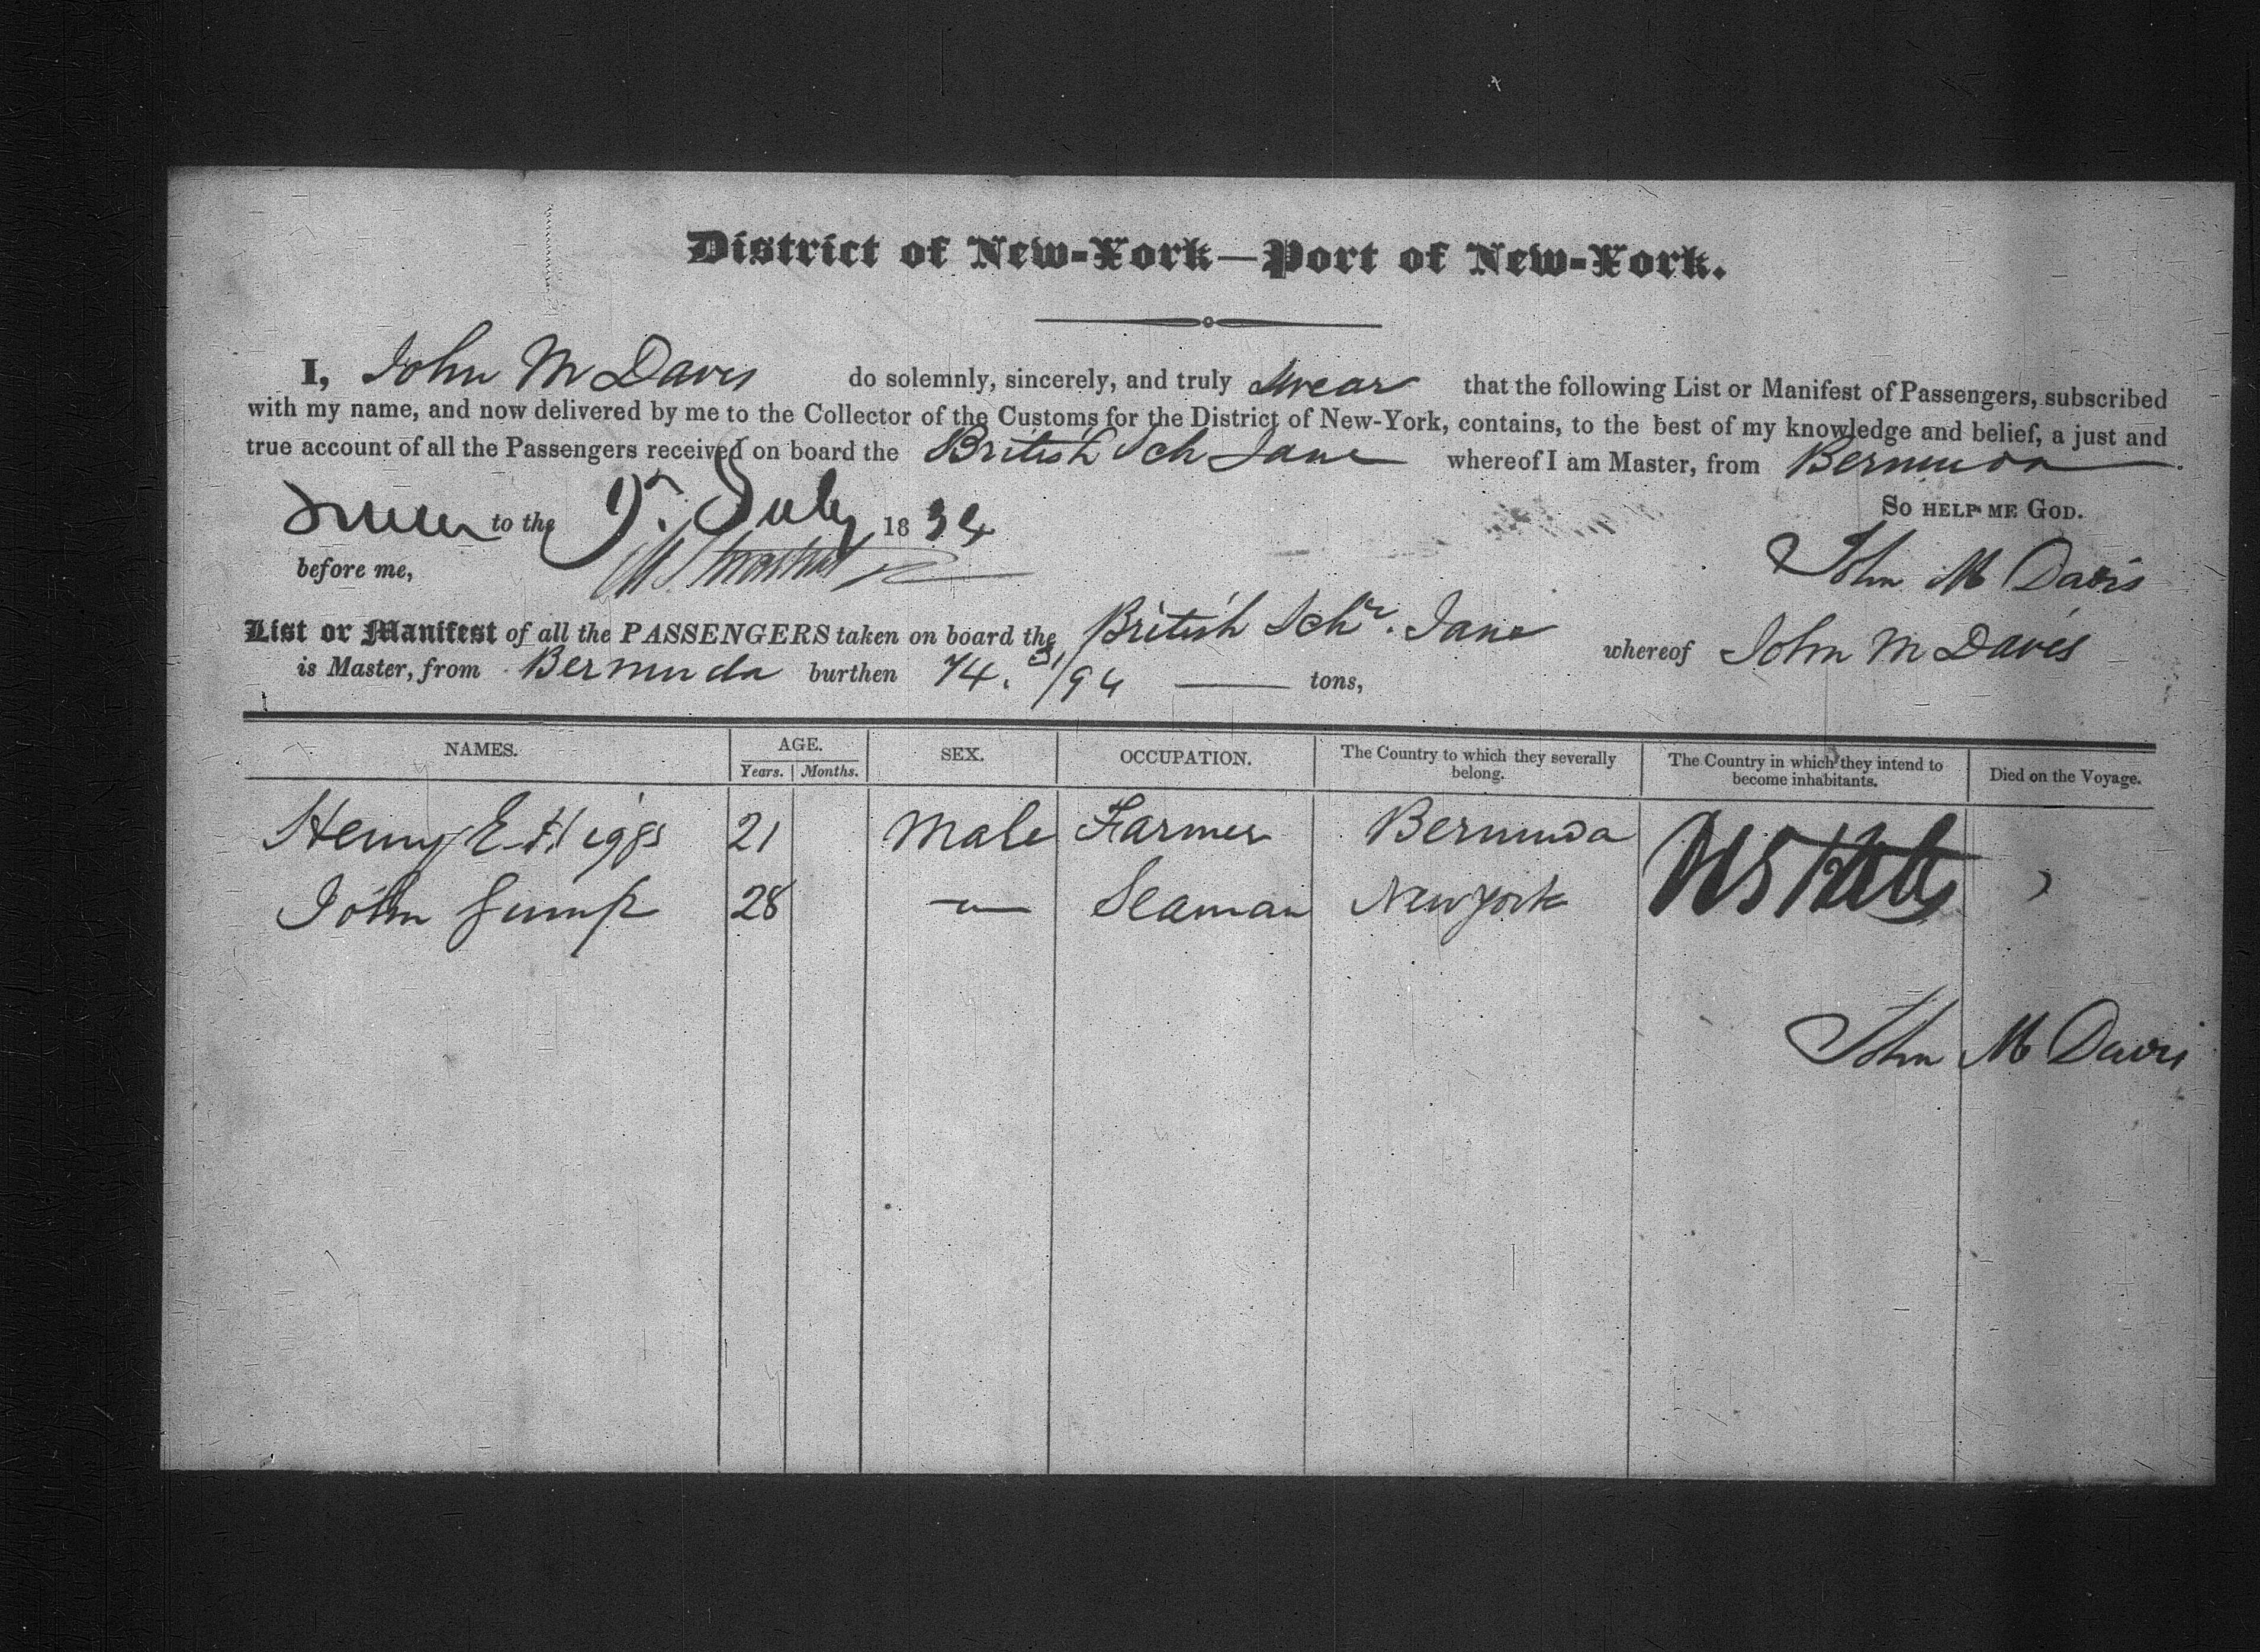 District of New-York—Port of New-York.
I, John M Davis do solemnly, sincerely, and truly swear that the following List or Manifest of Passengers, subscribed
with my name, and now delivered by me to the Collector of the Customs for the District of New-York, contains, to the best of my knowledge and belief, a just and
true account of all the Passengers received on board the British Sch Jane whereof I am Master, from Bermuda.
So HELP ME GOD.
Sworn to the 9th July 1834
before me,
John M Davis
List or Manifest of all the PASSENGERS taken on board the British Schr. Jane whereof John M Davis
is Master, from Bermuda burthen 74. 31/94 tons,
NAMES. AGE. SEX. OCCUPATION. The Country to which they severally belong. The Country in which they intend to become inhabitants. Died on the Voyage.
Years. Months.
Henry E Higgs 21 Male Farmer Bermuda U States
John 28 Seaman New york
John M Davis